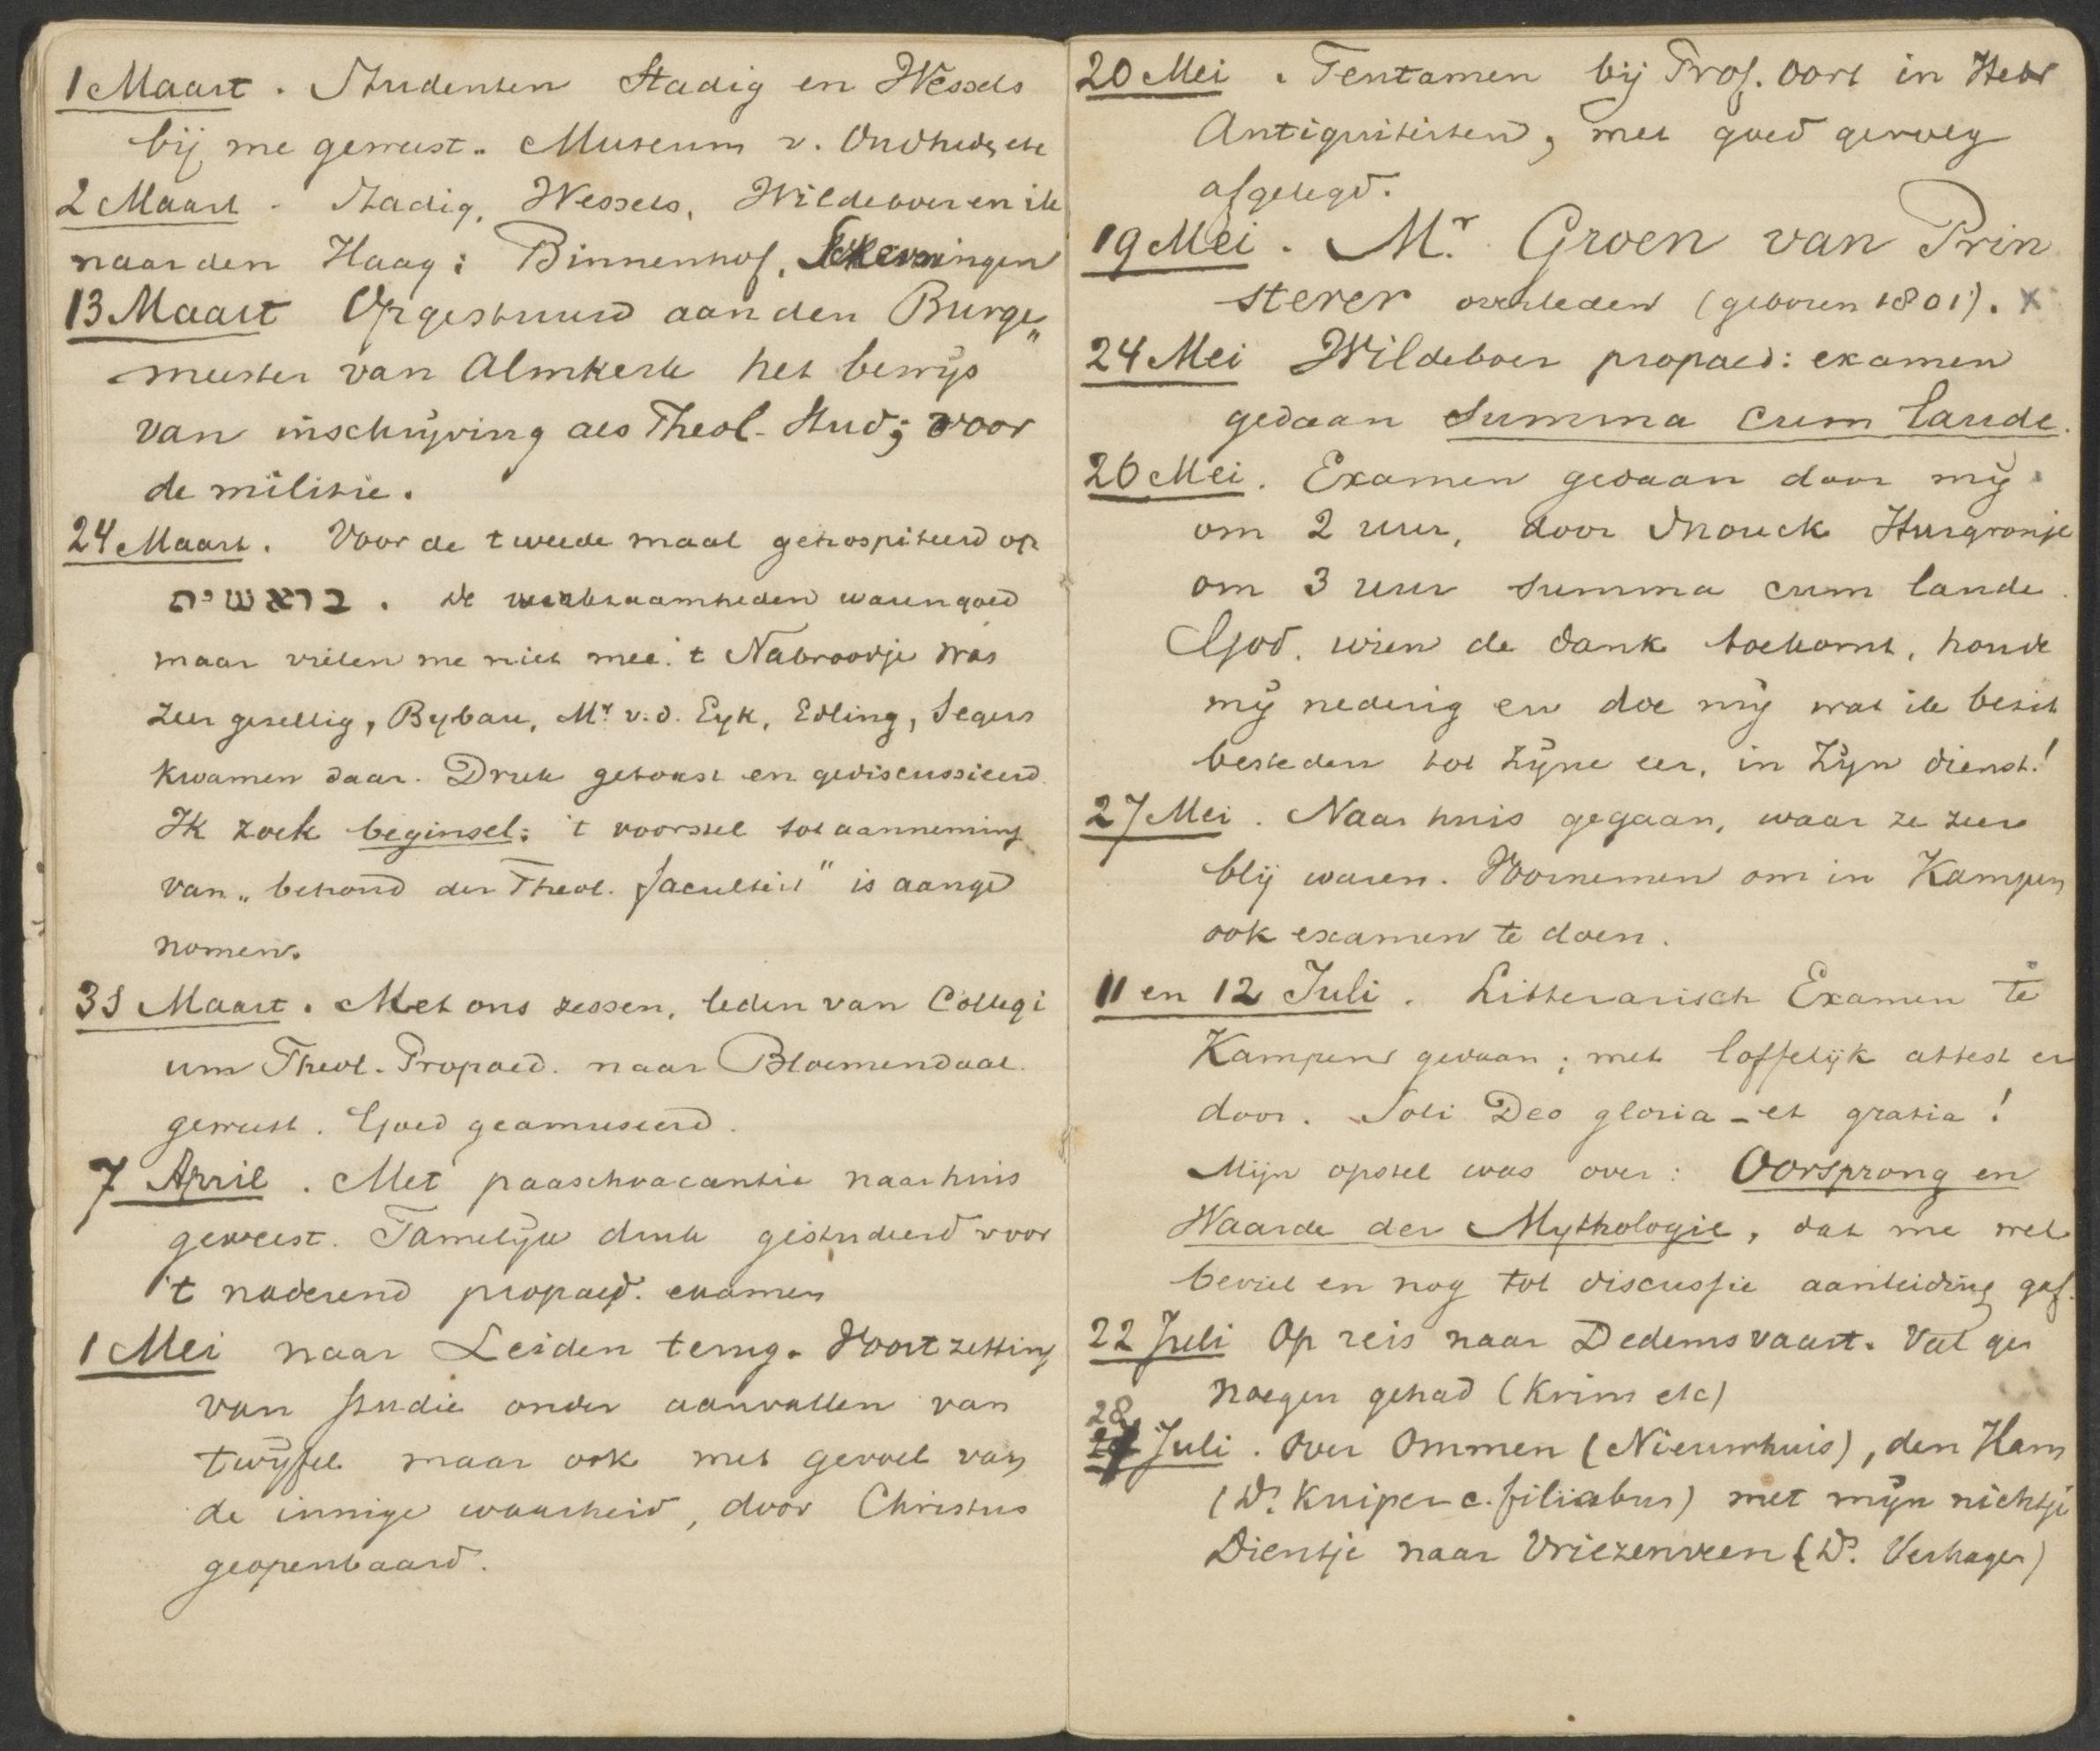 1 Maart. Studenten Stadig en Wessels
bij me geweest. Museum v. Oudhed, etc
2 Maart - Stadig, Wessels, Wildeboer en ik
naar den Haag: Binnenhof, Scheveningen
13 Maart Opgestuurd aan den Burge„
meester van Almkerk het bewijs
van inschrijving als Theol. Stud; voor
de militie.
24 Maart. Voor de tweede maal gehospiteerd op
בראשית. De werkzaamheden waren goed
maar vielen me niet mee. 't Nabroodje was
zeer gesellig, Bybau, Mr v.d. Eyk, Edling, Segers
kwamen daar. Druk getoast en gediscussieerd.
Ik zoek beginsel: 't voorstel tot aanneming
van „behoud der Theol. faculteit" is aange
nomen.
31 Maart. Met ons zessen, leden van Collegi
um Theol. Propaed. naar Bloemendaal
geweest. Goed geamuseerd.
7 April. Met paaschvacantie naar huis
geweest. Tamelijk druk gestudeerd voor
't naderend propaed. examen
1 Mei naar Leiden terug. Voortzetting
van studie onder aanvallen van
twijfel maar ook met gevoel van
de innige waarheid, door Christus
geopenbaard.
20 Mei. Tentamen bij Prof. Oort in Hebr
Antiquiteiten, met goed gevolg
afgelegd.
19 Mei. Mr. Groen van Prin
sterer overleden (geboren 1801). x
24 Mei Wildeboer propaed: examen
gedaan summa cum laude.
26 Mei. Examen gedaan door mij
om 2 uur, door Snouck Hurgronje
om 3 uur summa cum laude.
God, wien de dank toekomt, houde
mij nederig en doe mij wat ik bezit
besteden tot Zijne eer, in Zijn dienst!
27 Mei. Naar huis gegaan, waar ze zeer
blij waren. Voornemen om in Kampen
ook examen te doen.
11 en 12 Juli. Litterarisch Examen te
Kampen gedaan; met loffelijk attest er
door. Soli Deo gloria - et gratia!
Mijn opstel was over: Oorsprong en
Waarde der Mythologie, dat me wel
beviel en nog tot discussie aanleiding gaf.
22 Juli Op reis naar Dedemsvaart. Veel ge
noegen gehad (Krim etc)
28 Juli. Over Ommen (Nieuwhuis), den Ham
(Ds. Kuiper c. filiabus) met mijn nichtje
Dientje naar Vriezenveen (Ds. Verhagen)